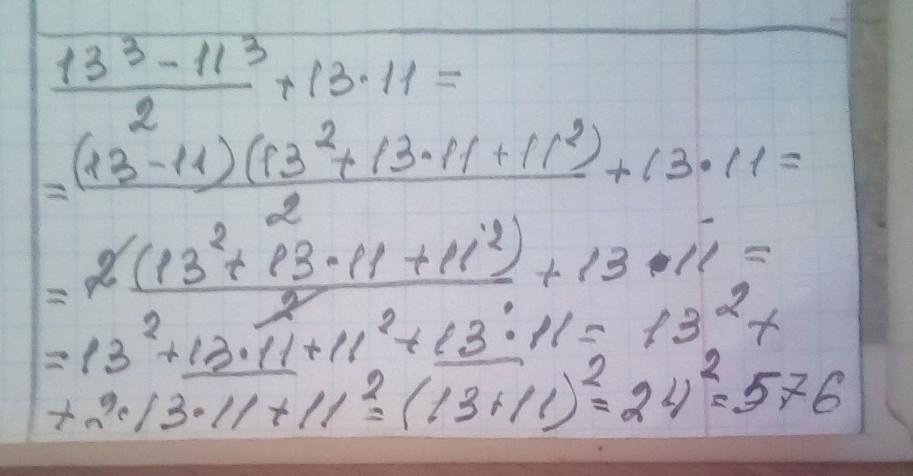 (13³ - 11³)/2 + 13·11 =
= (13 - 11)(13² + 13·11 + 11²)/2 + 13·11 =
= 2(13² + 13·11 + 11²)/2 + 13·11 =
= 13² + 13·11 + 11² + 13·11 = 13² +
+ 2·13·11 + 11² = (13 + 11)² = 24² = 576